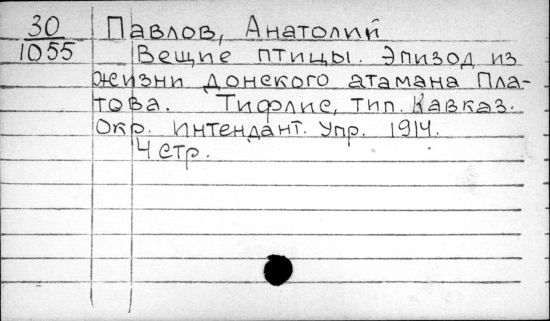 30
1055
Павлов, Анатолий
Вещие птицы. Эпизод из
жизни донского атамана Пла-
това. Тифлис, тип. Кавказ.
Окр. Интендант. Упр. 1914.
4 стр.